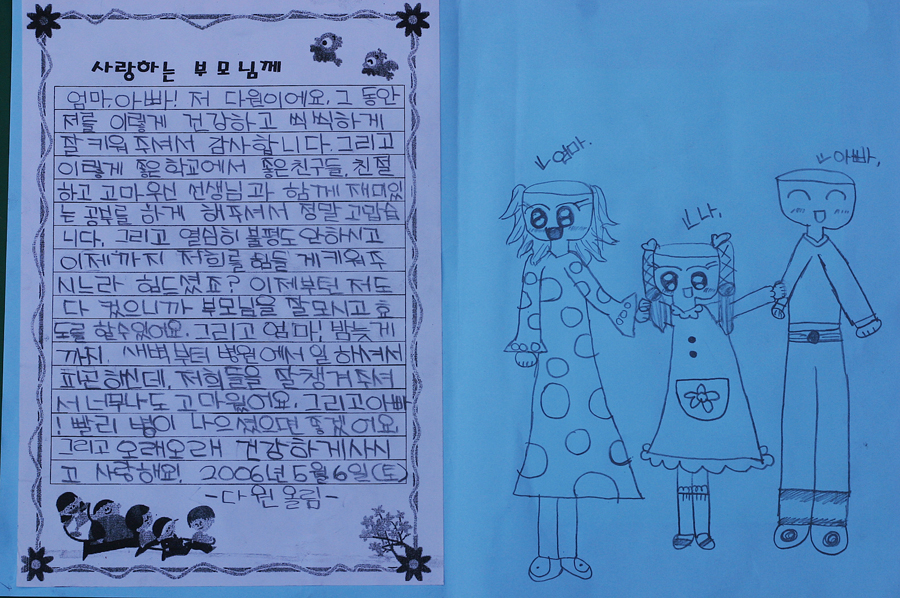 사랑하는 부모님께
엄마, 아빠! 저 다원이에요. 그 동안
저를 이렇게 건강하고 씩씩하게
잘 키워 주셔서 감사합니다. 그리고
이렇게 좋은 학교에서 좋은 친구들, 친절
하고 고마우신 선생님과 함께 재미있
는 공부를 하게 해주셔서 정말 고맙습
니다. 그리고 열심히 불평도 안하시고
이제까지 저희를 힘들게 키워주
시느라 힘드셨죠? 이제부턴 저도
다 컸으니까 부모님을 잘 모시고 효
도를 할 수 있어요. 그리고 엄마, 밤늦게
까지. 새벽부터 병원에서 일 하셔서
피곤하신데, 저희들을 잘 챙겨 주셔
서 너무나도 고마웠어요. 그리고 아빠
! 빨리 병이 나으셨으면 좋겠어요.
그리고 오래오래 건강하게 사시
고 사랑해요! 2006년 5월 6일(토)
-다원 올림-
엄마.
나.
아빠.